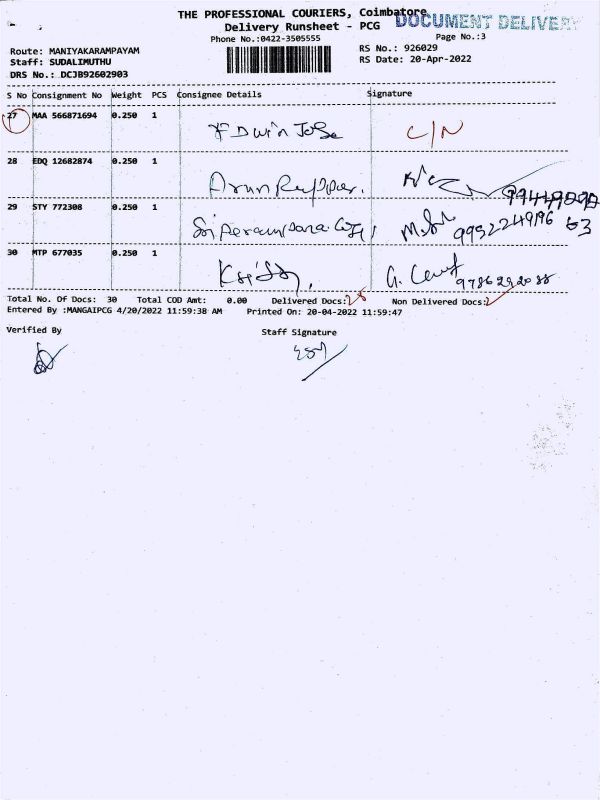 THE PROFESSIONAL COURIERS, Coimbatore
DOCUMENT DELIVERY
Delivery Runsheet - PCG
Phone No.:0422-3505555
Page No.:3
Route: MANIYAKARAMPAYAM
RS No.: 926029
Staff: SUDALIMUTHU
RS Date: 20-Apr-2022
DRS No.: DCJB92602903
S No Consignment No Weight PCS Consignee Details Signature
27 MAA 566871694 0.250 1 EDwin Jose C/N
28 EDQ 12682874 0.250 1
29 STY 772308 0.250 1 9952249196
30 MTP 677035 0.250 1 9786292088
Total No. Of Docs: 30 Total COD Amt: 0.00 Delivered Docs:28 Non Delivered Docs:2
Entered By :MANGAIPCG 4/20/2022 11:59:38 AM Printed On: 20-04-2022 11:59:47
Verified By Staff Signature